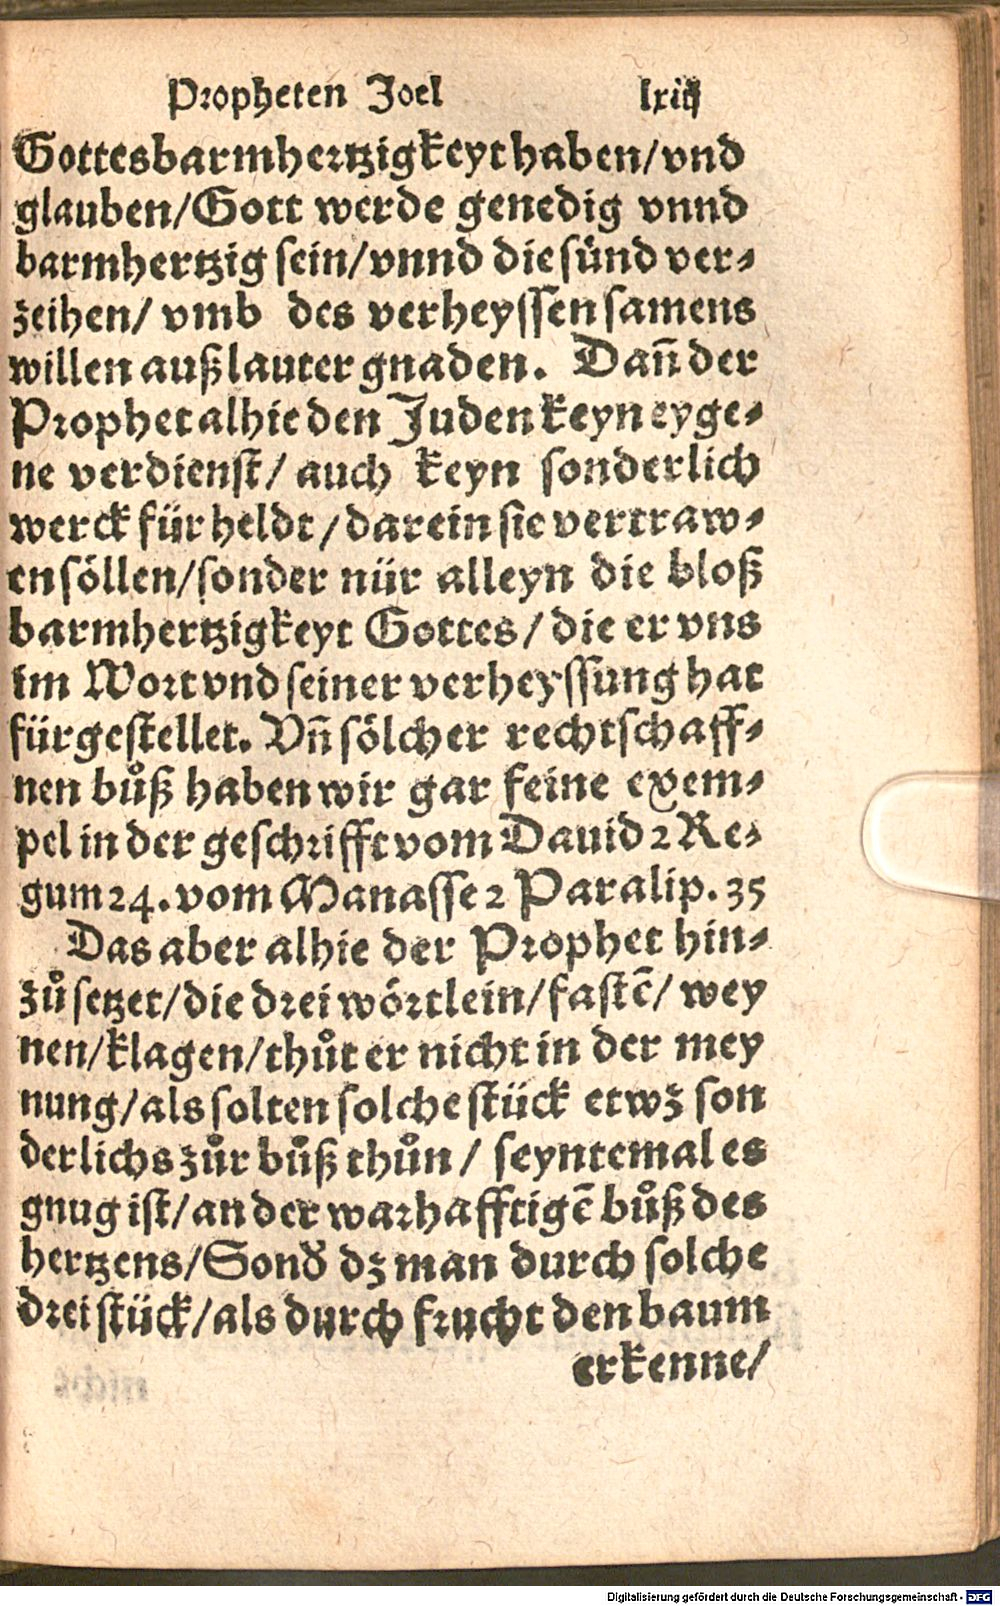 Propheten Joel lxiij
Gottes barmhertzigkeyt haben/vnd
glauben/Gott werde genedig vnnd
barmhertzig sein/vnnd die sünd ver⸗
zeihen/ vmb des verheyssen samens
willen auß lauter gnaden. Dañ der
Prophet alhie den Juden keyn eyge⸗
ne verdienst/ auch keyn sonderlich
werck für heldt/darein sie vertraw⸗
en söllen/sonder nür alleyn die bloß
barmhertzigkeyt Gottes/die er vns
im Wort vnd seiner verheyssung hat
fürgestellet. Vñ sölcher rechtschaff⸗
nen bůß haben wir gar feine exem⸗
pel in der geschrifft vom Dauid 2 Re⸗
gum 24. vom Manasse 2 Paralip. 35
Das aber alhie der Prophet hin⸗
zů setzet/die drei wörtlein/fastē/ wey
nen/klagen/thůt er nicht in der mey
nung/als solten solche stück etwz son
derlichs zůr bůß thůn/ seyntemal es
gnug ist/an der warhafftigē bůß des
hertzens/Sond̄ dz man durch solche
drei stück/als durch frucht den baum
erkenne/
Digitalisierung gefördert durch die Deutsche Forschungsgemeinschaft - DFG